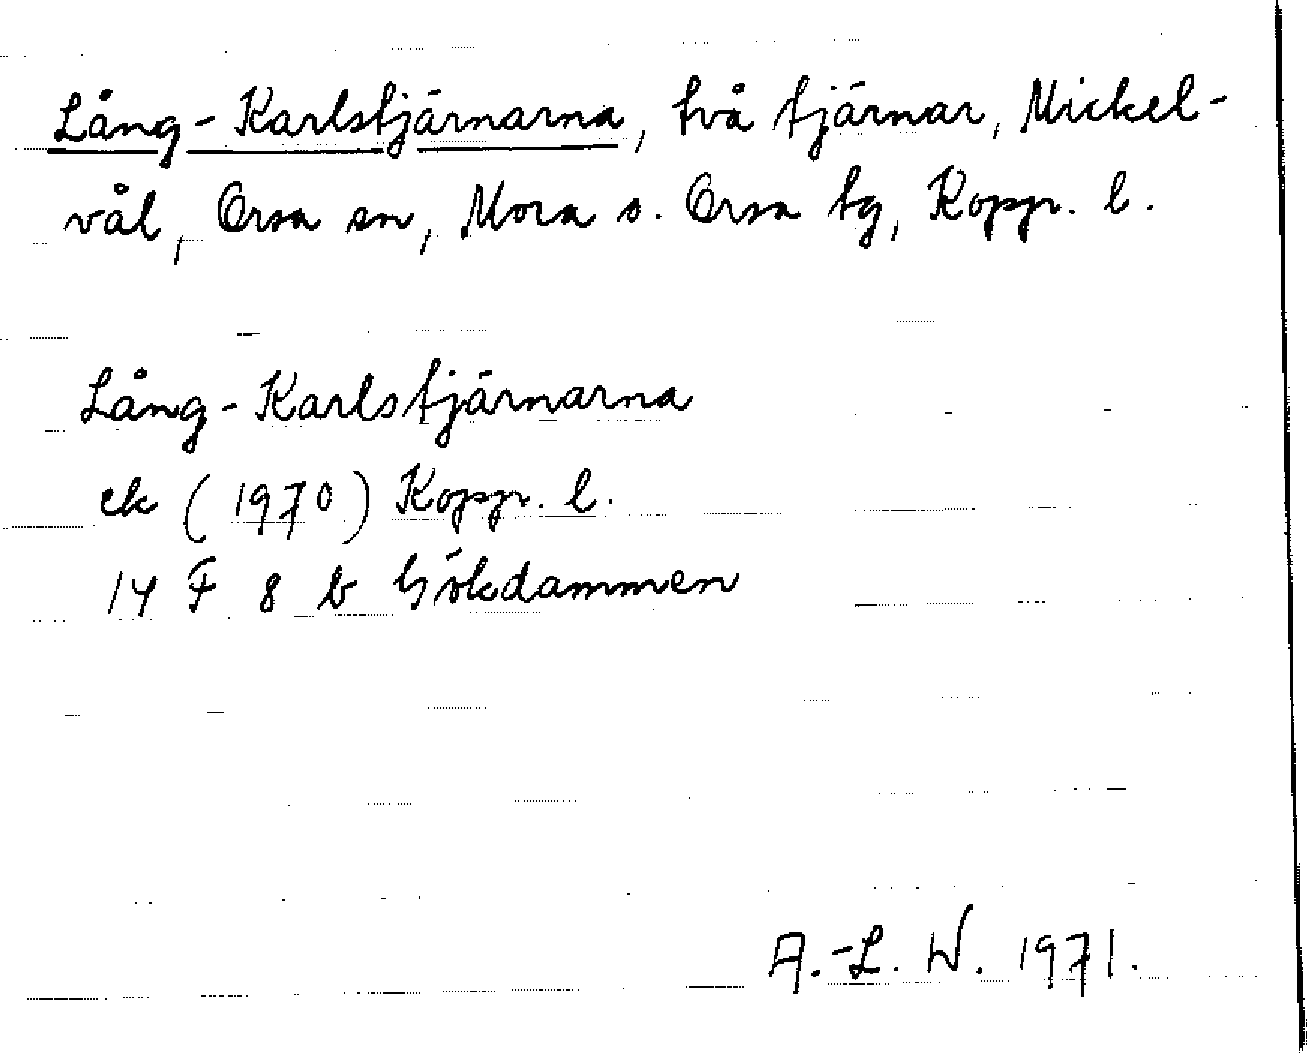 Lång-Karlstjärnarna, två tjärnar, Mickel-
vål, Orsa sn, Mora o. Orsa tg, Kopp. l.
Lång-Karlstjärnarna
ek (1970) Kopp. l.
14 F 8 b Gökdammen
A.-L. W. 1971.